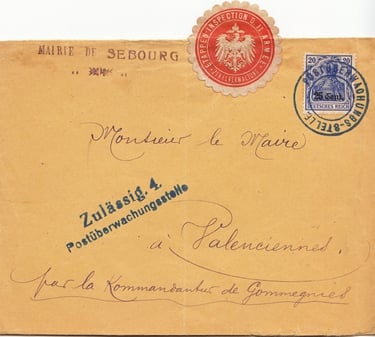 MAIRIE DE SEBOURG
ETAPPENINSPECTION D. II. ARMEE
20 20
25 Cent.
DEUTSCHES REICH
POSTÜBERWACHUNGS-STELLE
Monsieur le Maire
Zulässig. 4.
Postüberwachungsstelle
à Valenciennes.
par la Kommandantur de Gommegnies